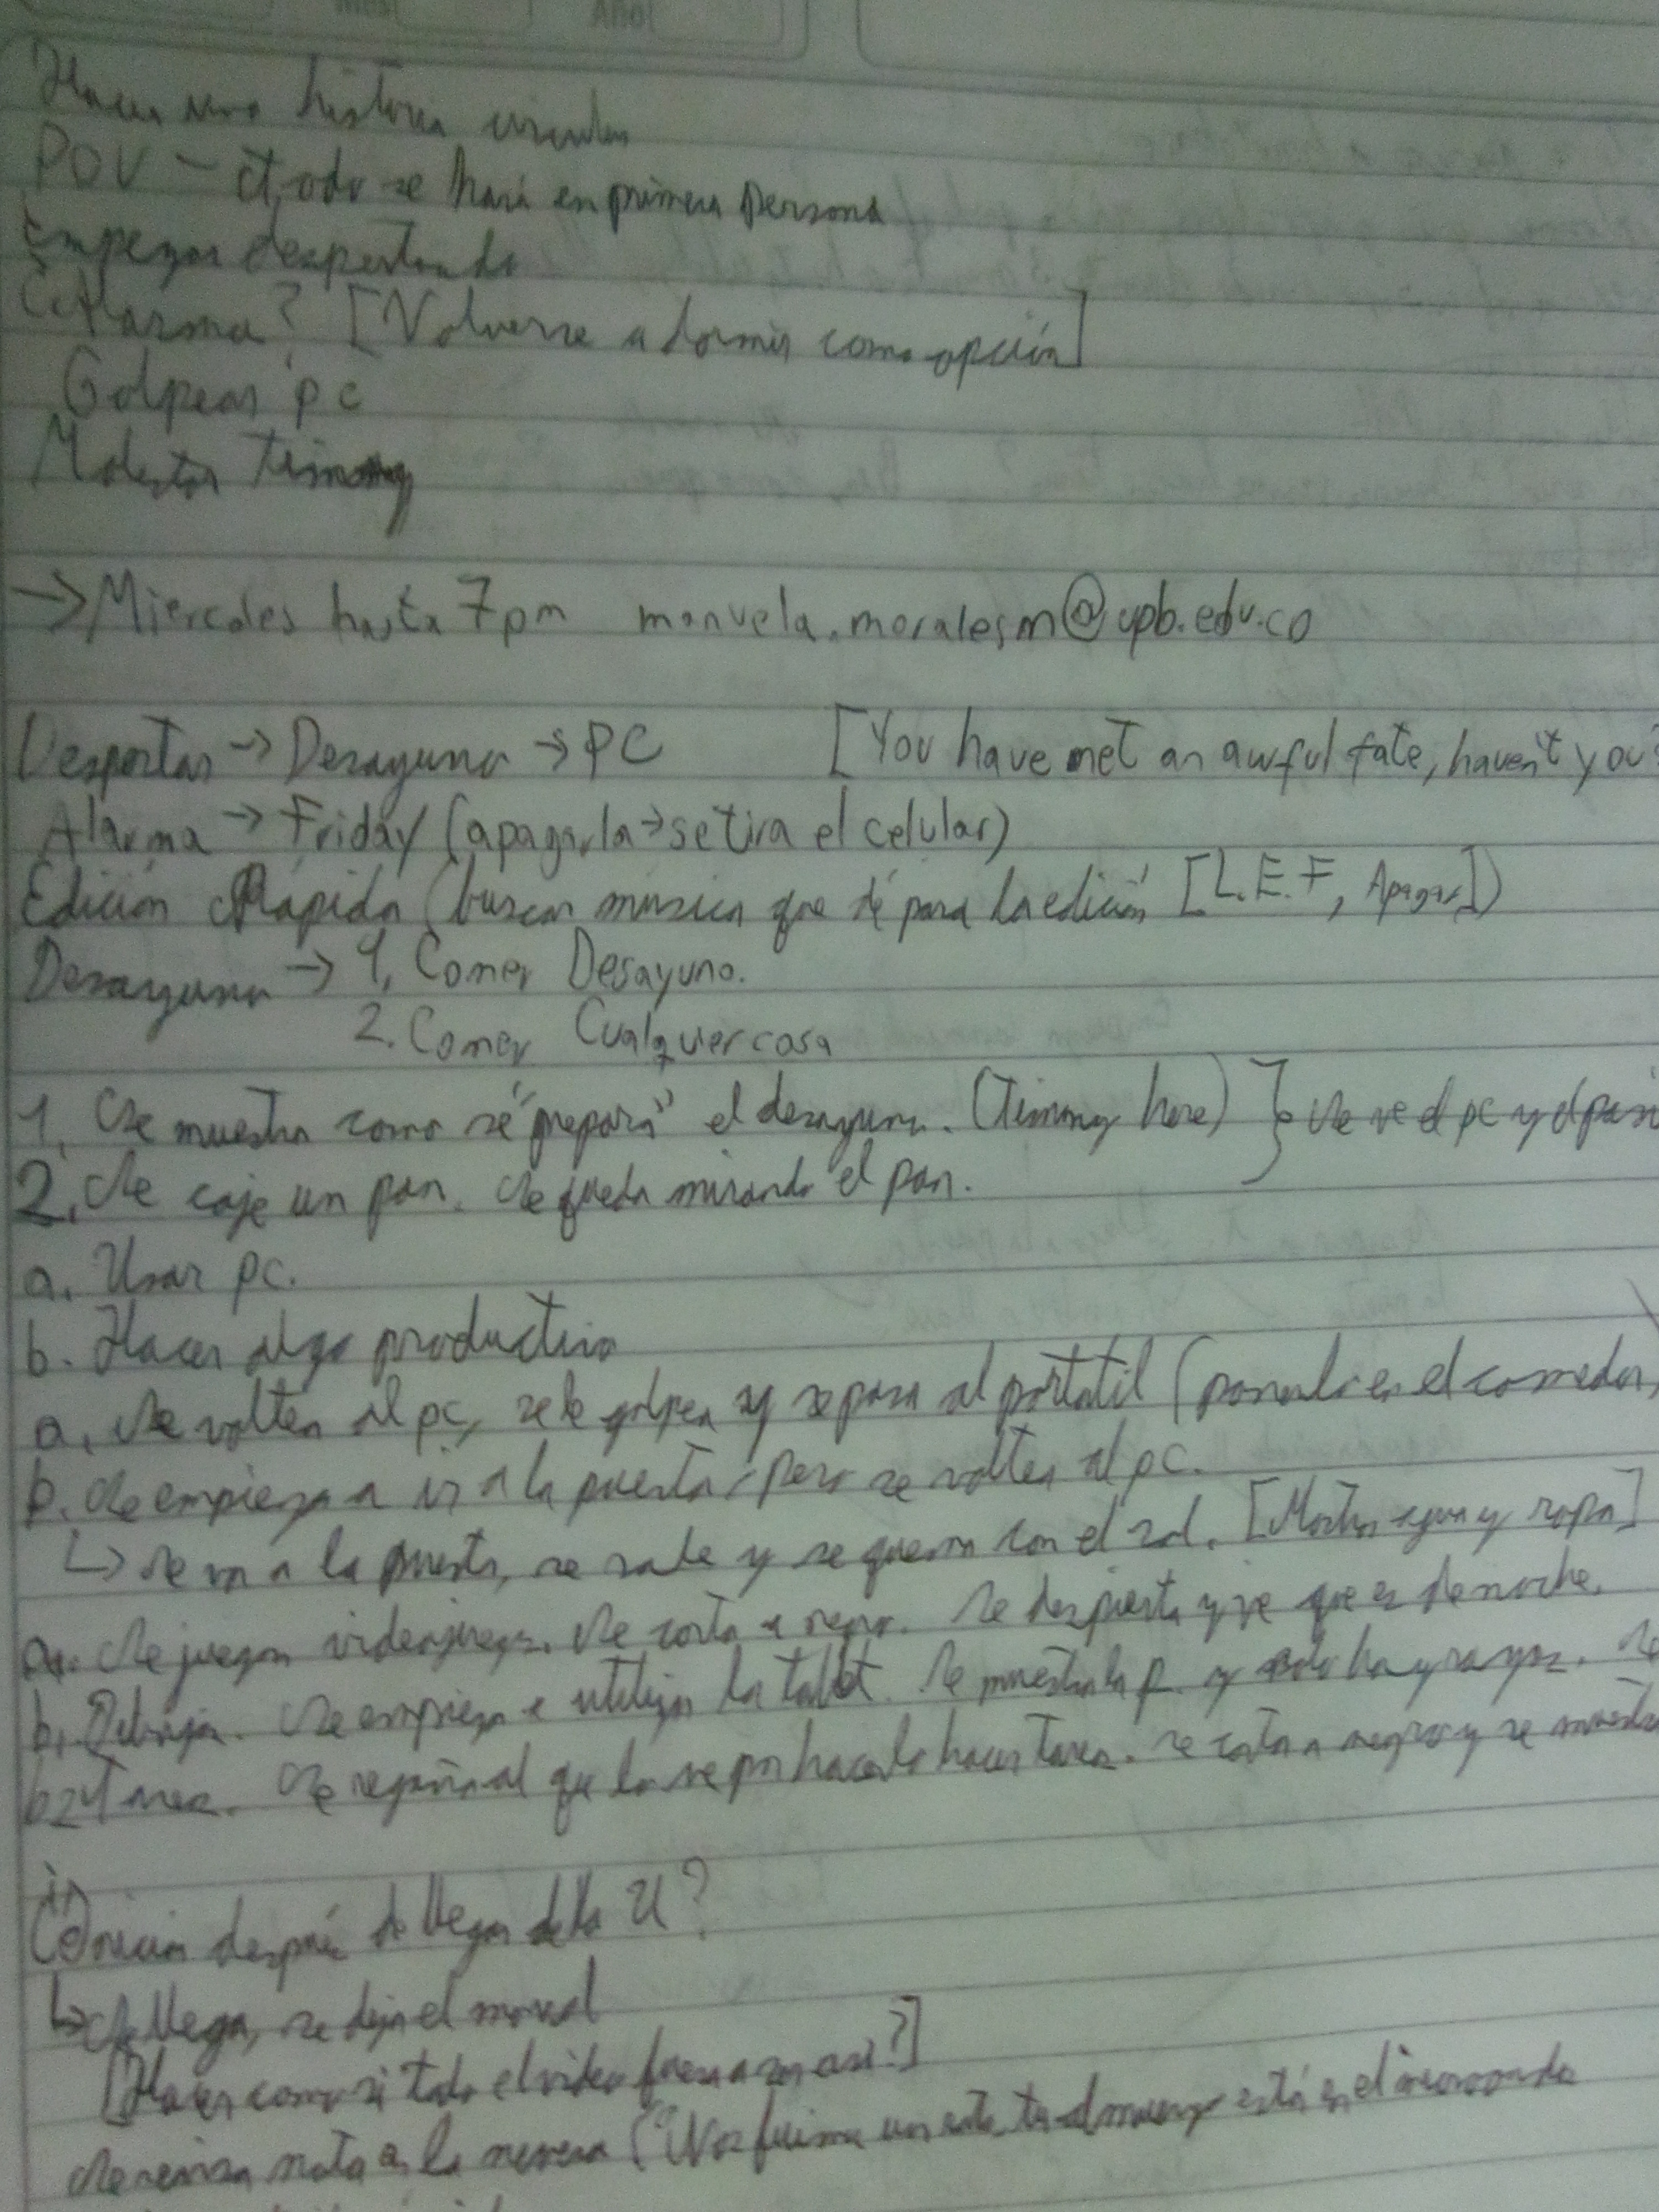 Mes Año
Hacer una historia circular
POV - todo se hará en primera persona
Empezar despertando
¿Alarma? [Volverse a dormir como opción]
Golpear pc
Molestar Timmy
→ Miercoles hasta 7pm manuela.moralesm@upb.edu.co
Despertar → Desayuno → PC [You have met an awful fate, haven't you?
Alarma → Friday (apagarla → se tira el celular)
Edición Rápida (buscar música que dé para la edición [L.E.F, Apagar])
Desayuno → 1. Comer Desayuno.
2. Comer Cualquier cosa
1. Se muestra como se "prepara" el desayuno. (Timmy here) } Se ve el pc y el
2. Se coje un pan. Se queda mirando el pan.
a. Usar pc.
b. Hacer algo productivo
a. Se voltea al pc, se le golpea y se pasa al portatil (ponerlo en el comedor)
b. Se empieza a ir a la puerta, pero se voltea al pc.
↳ Se va a la puerta, se sale y se quema con el sol. [Mostrar agua y ropa]
a. Se juegan videojuegos. Se corta a negro. Se despierta y ve que es de noche.
b1 Dibujar. Se empieza a utilizar la tablet. Se muestra la p. y solo hay rayas. Se
b2 Tarea. Se regaña al que lo ve por hacerlo hacer tarea. Se corta a negro y se muestra
¿Inician después de llegar de la U?
↳ Se llega, se deja el morral
[Hacer como si todo el video fuera a ser así?]
Se revisa nota en la nevera ("Nos fuimos un rato, tu almuerzo está en el microondas